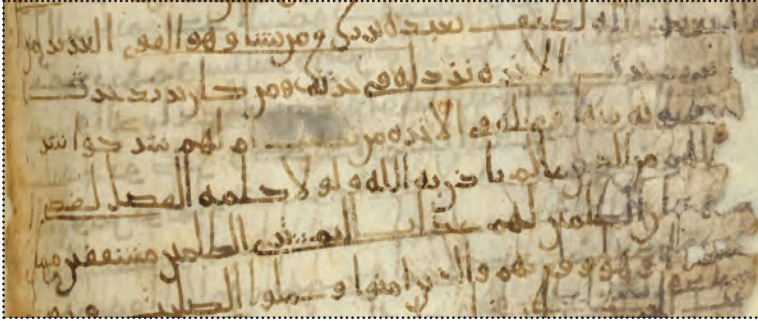 الله لطيف بعبده يرزق من يشا وهو القوى العزيز من
الاخره نزد له فى حرثه ومن كان يريد حرث
نوته منها وما له فى الاخره من نصيب ام لهم شركوا شر
لهم من الدين ما لم ياذن به الله ولولا كلمه الفصل لقضى
الظلمين لهم عذاب اليم ترى الظلمين مشفقين مما
وهو وقع بهم والذين امنوا وعملوا الصلحت